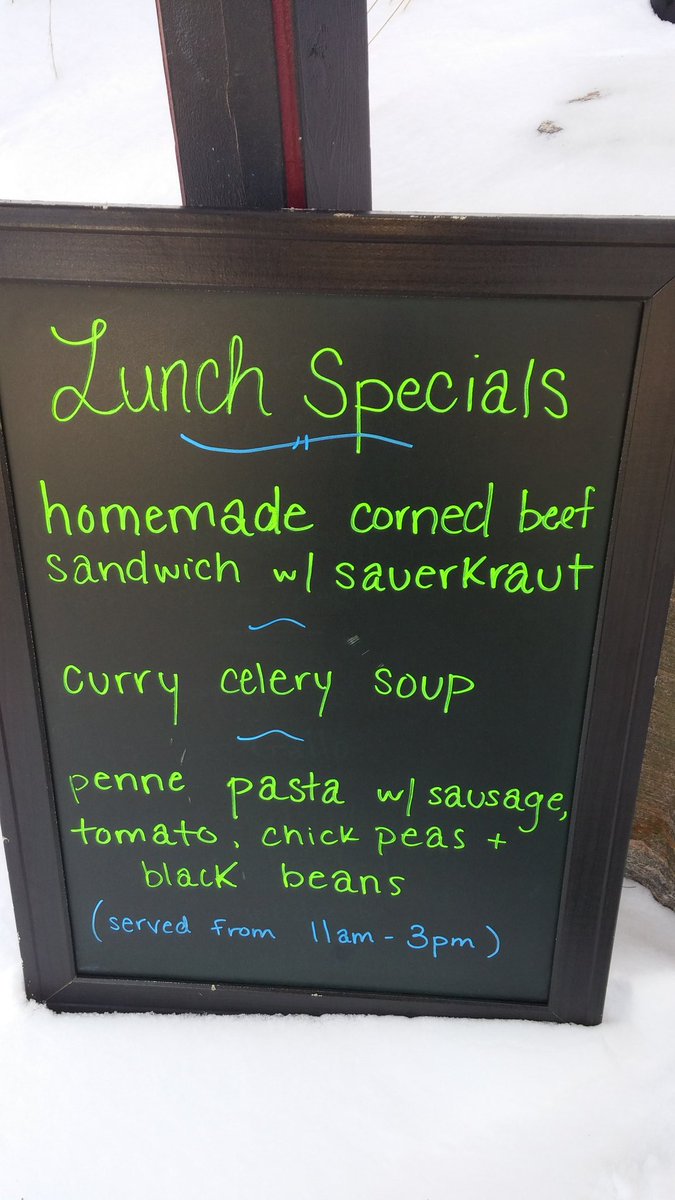 Lunch Specials
homemade corned beef
sandwich w/ sauerkraut
curry celery soup
penne pasta w/ sausage,
tomato, chick peas +
black beans
(served from 11am - 3pm)